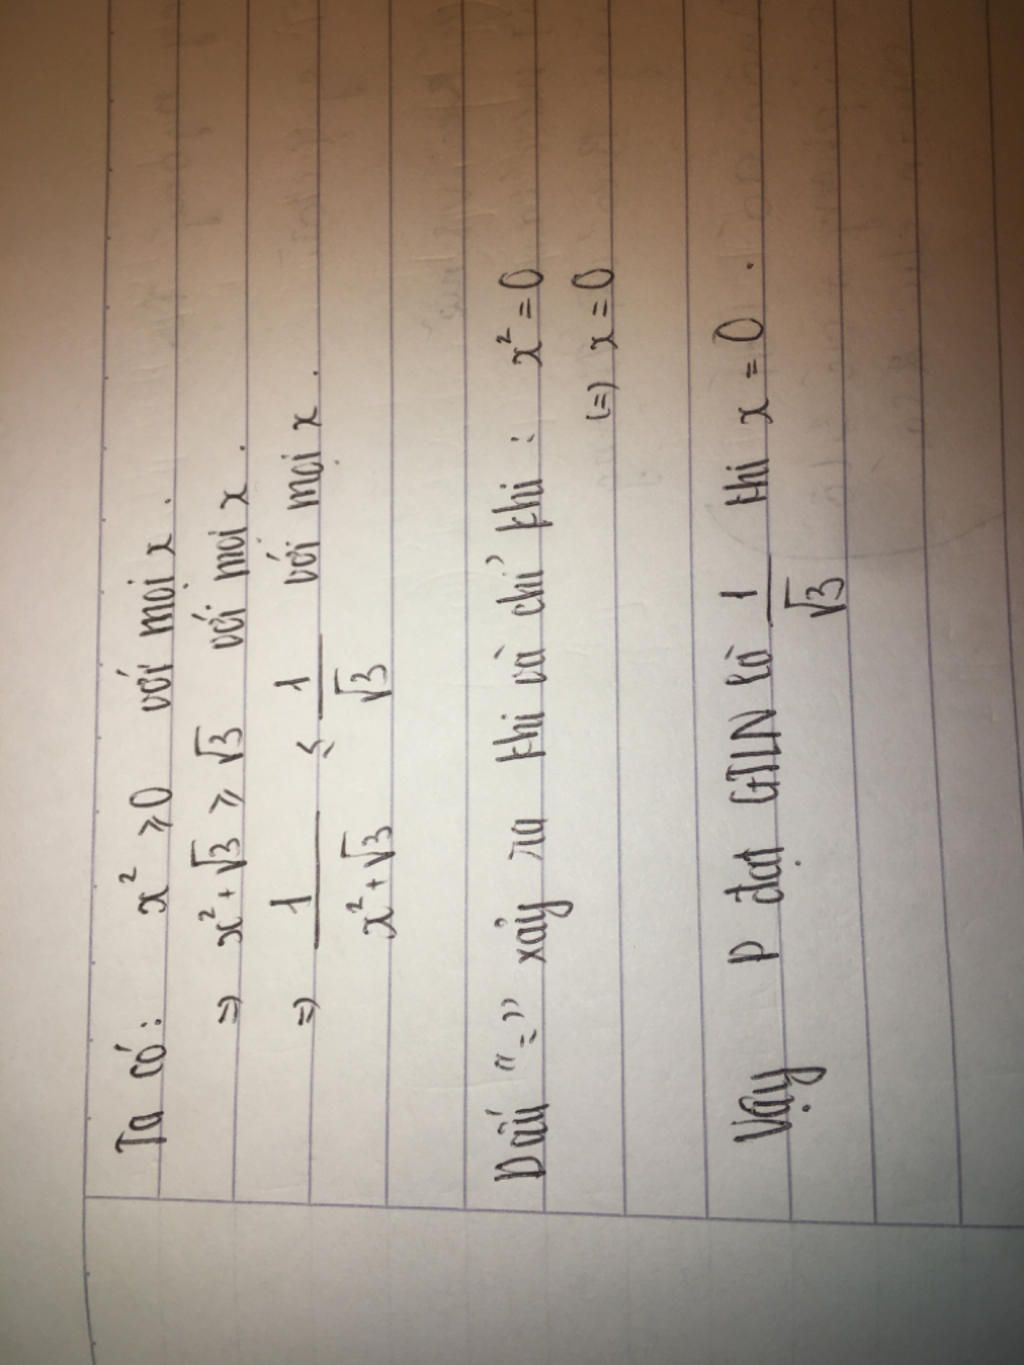 Ta có: x² ⩾ 0 với mọi x.
=> x² + √3 ⩾ √3 với mọi x.
=> 1/(x² + √3) ≤ 1/√3 với mọi x.
Dấu "=" xảy ra khi và chỉ khi: x² = 0
(=) x = 0
Vậy P đạt GTLN là 1/√3 thi x = 0.